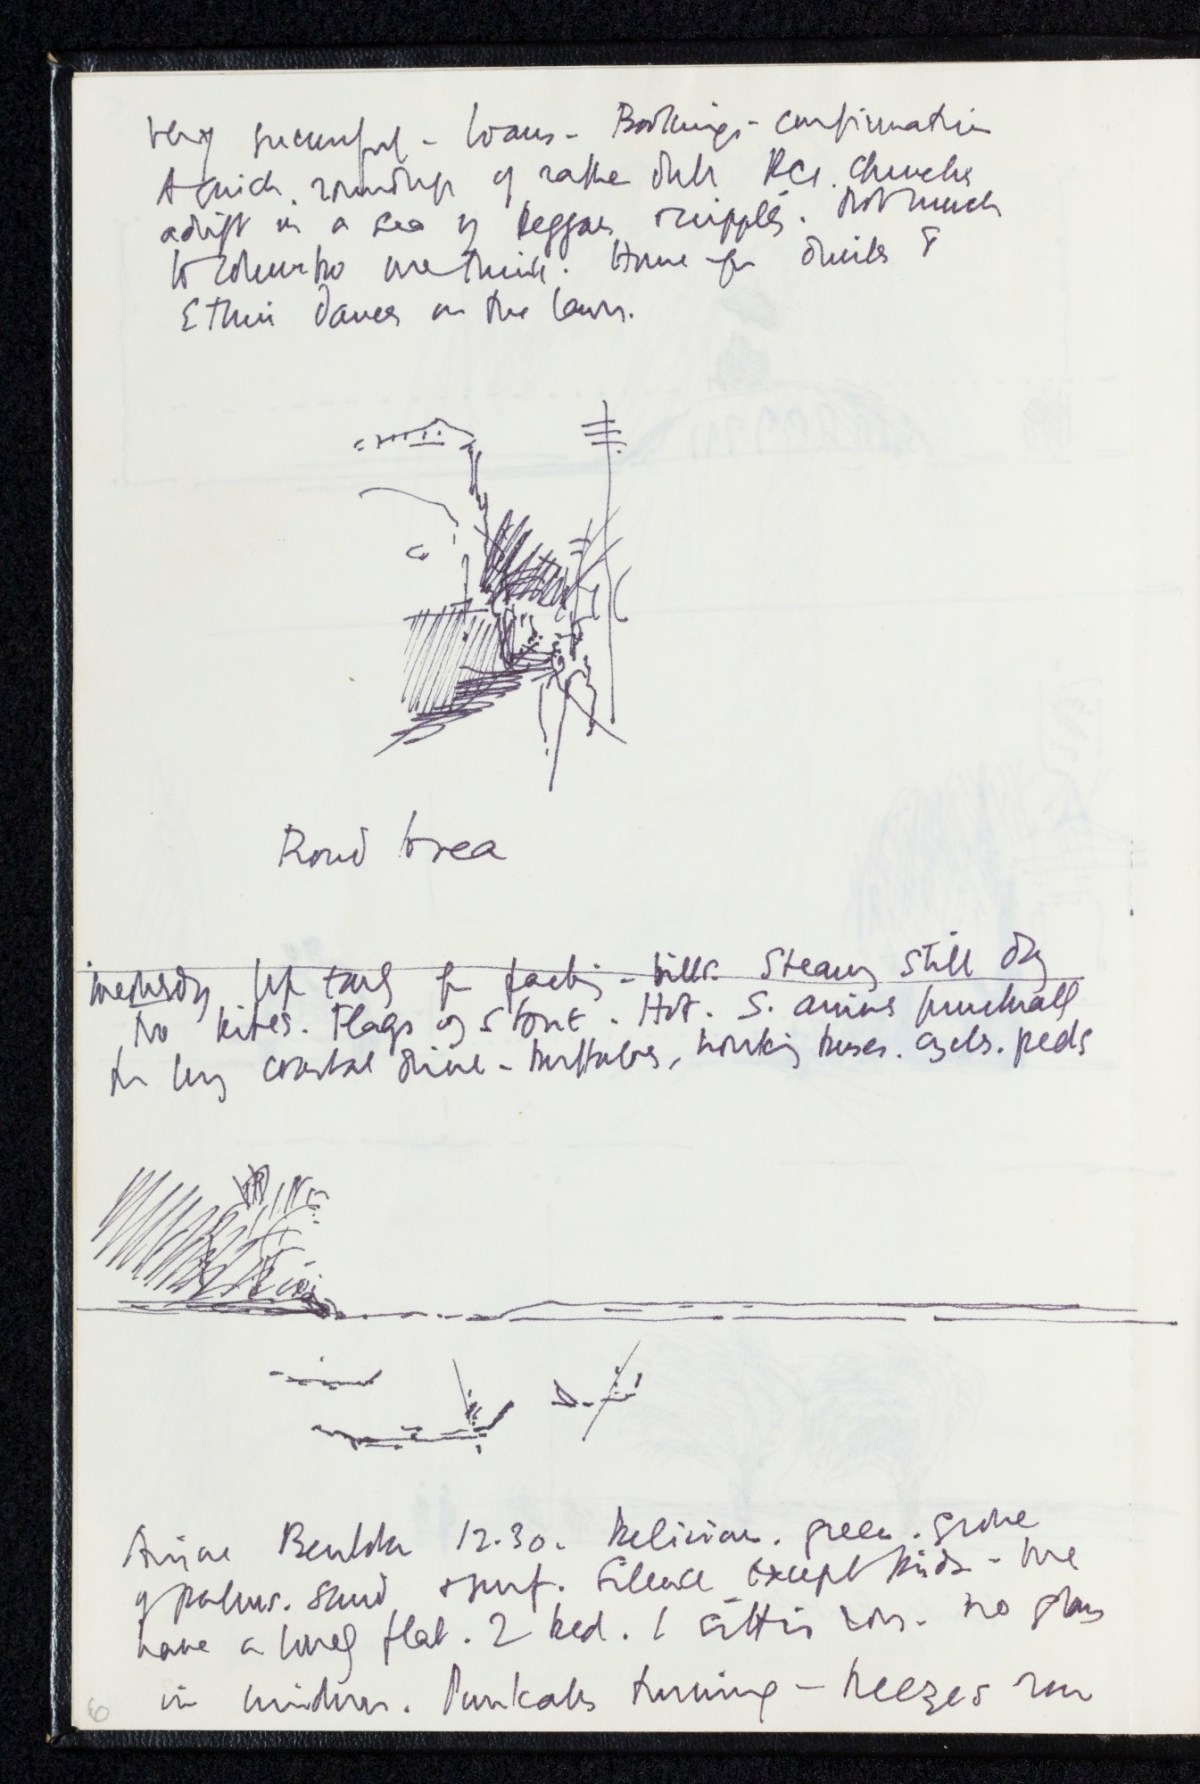 Very successful - loans - Bookings - confirmation
A quick roundup of rather dull RC1. Churches
adrift in a sea of beggars & cripples. Not much
to Colombo we think. Home for drinks &
Ethnic Dances on the lawn.
Road
up early for packing - bills. Steamy still day
No kites. Flags of stone. Hot. S. arrives punctually
for long coastal drive - buffaloes, honking buses. cycles. peds
Arrive 12.30. Delicious. green. grove
of palms. sand & surf. Silence except birds - We
have a lovely flat. 2 bed. 1 sitting room. no glass
in windows. Punkahs turning - breezes
6